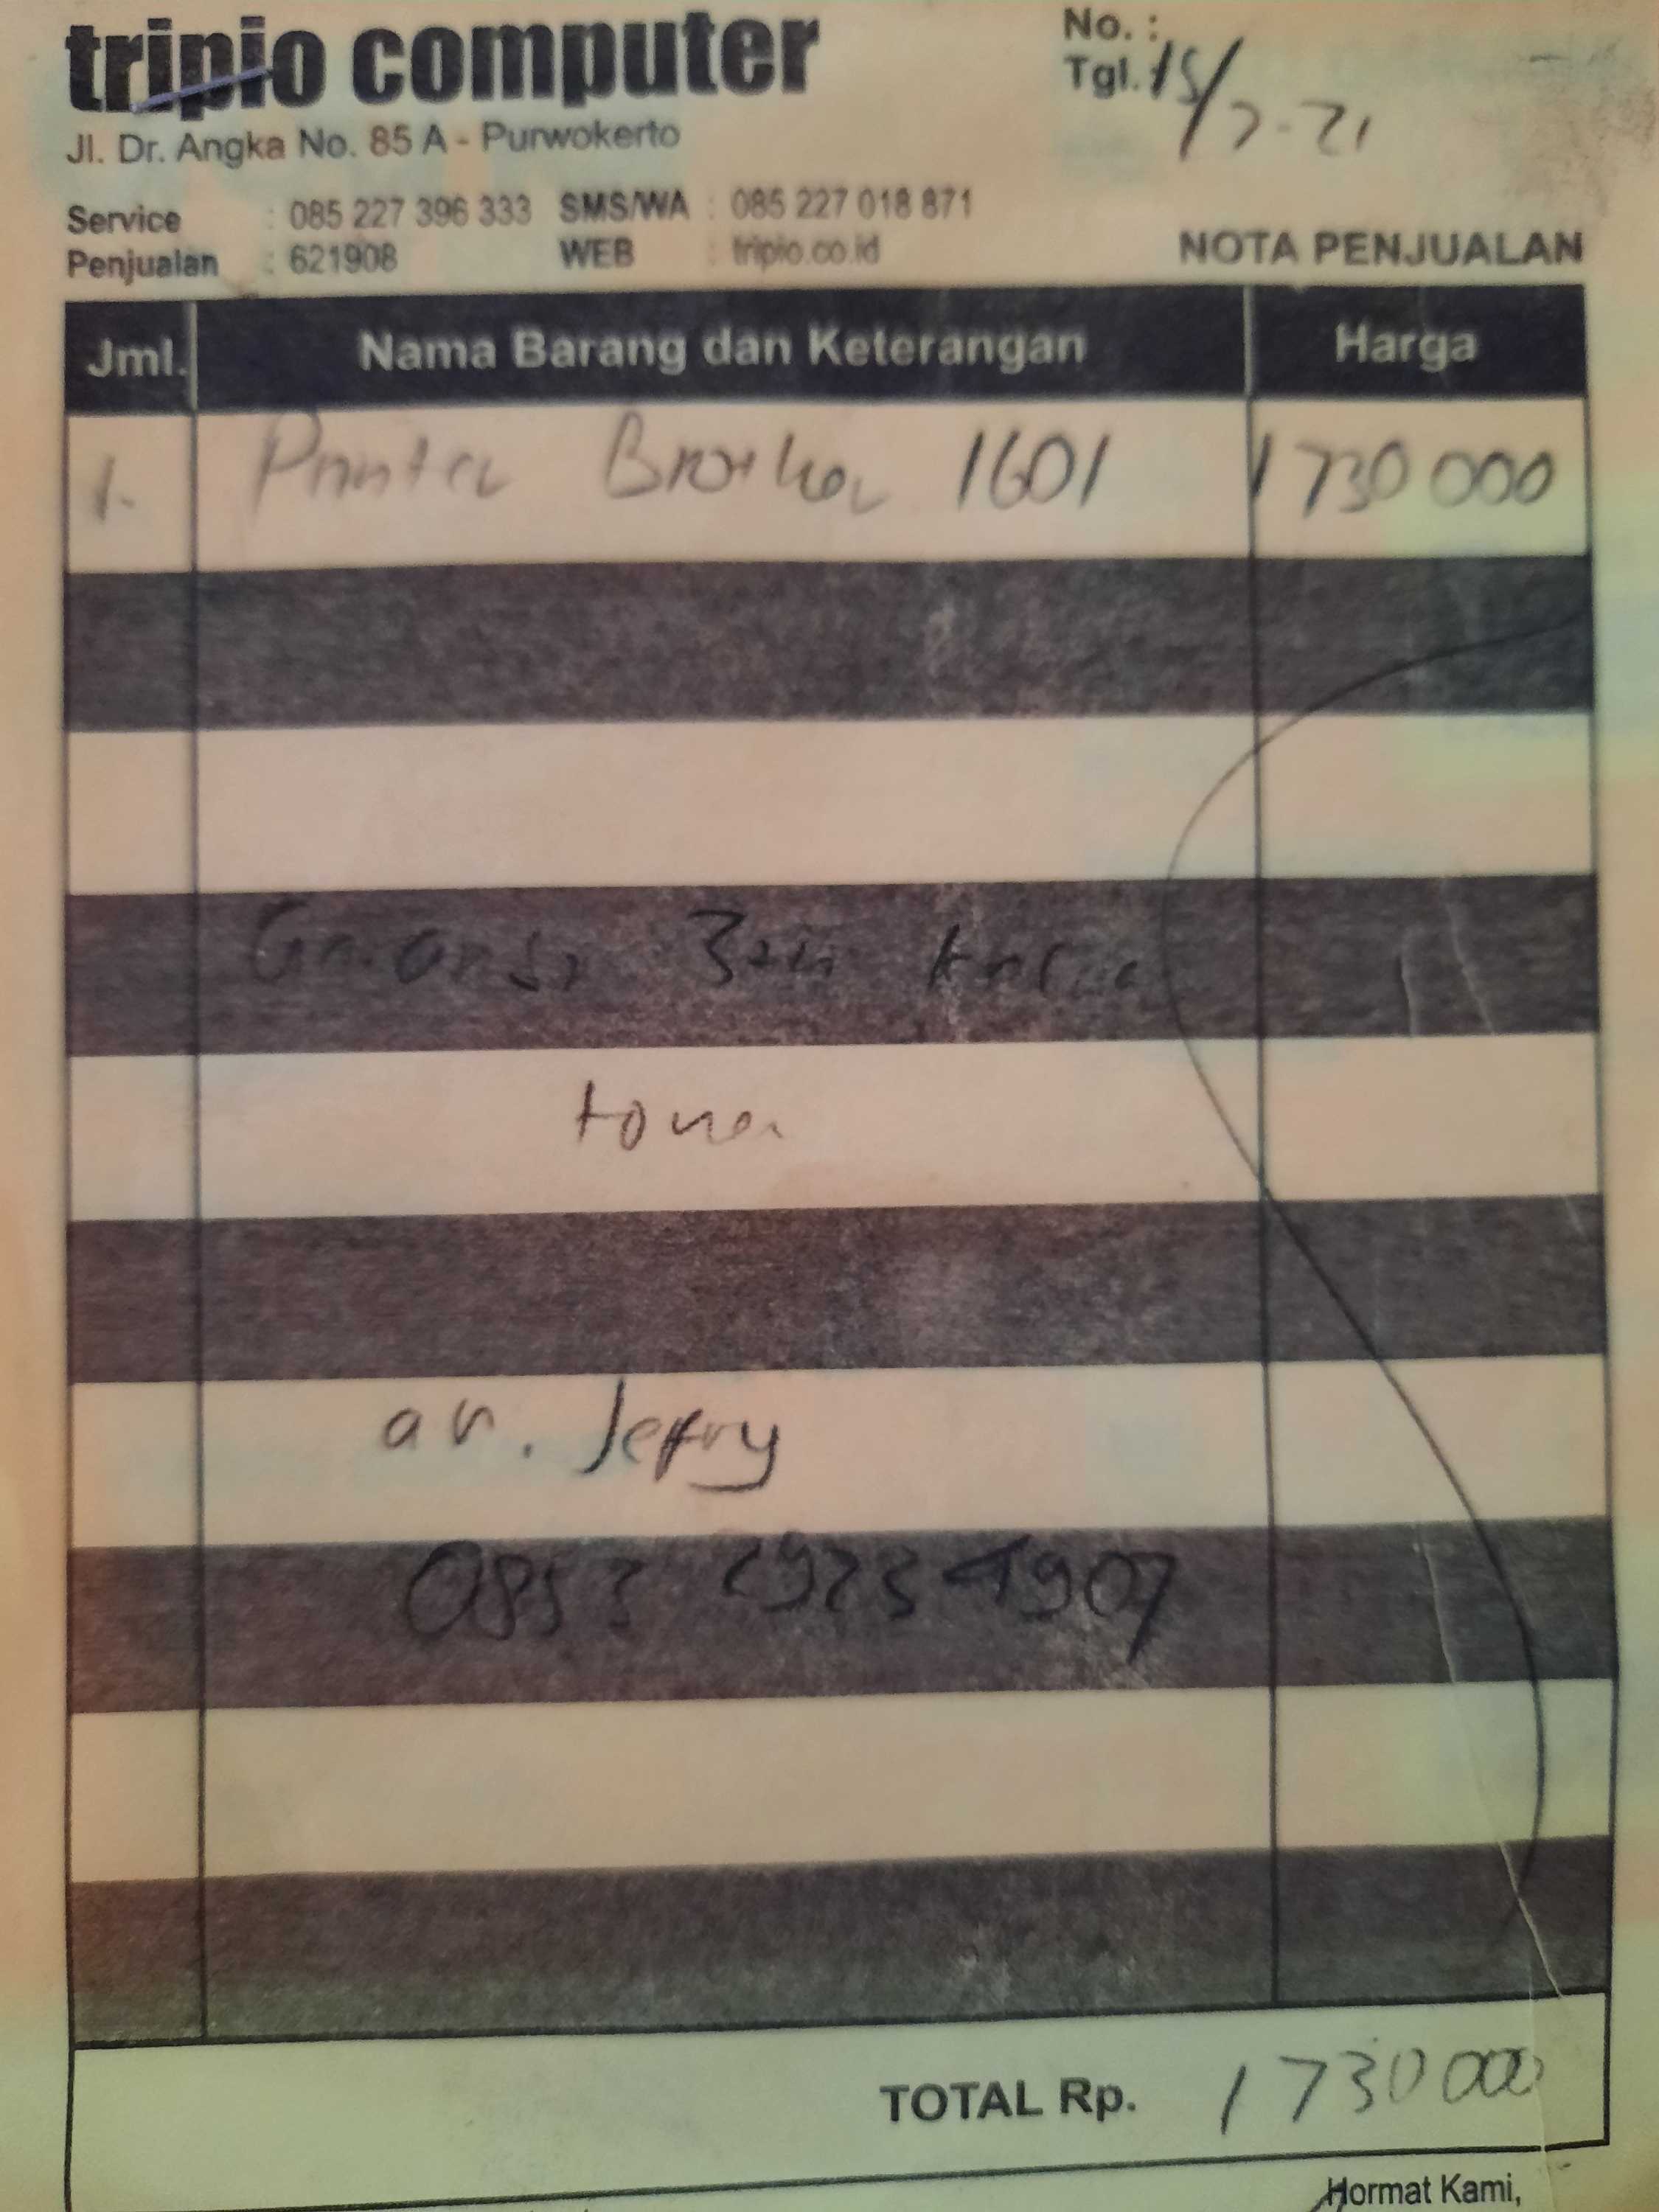 tripio computer
No. :
Tgl. 15/7-21
Jl. Dr. Angka No. 85 A - Purwokerto
Service : 085 227 396 333 SMS/WA : 085 227 018 871
Penjualan : 621908 WEB : tripio.co.id
NOTA PENJUALAN
Jml. Nama Barang dan Keterangan Harga
1. Printer Brother 1601 1730 000
Garansi 3th
toner
an. Jefry
0853 2923 4907
TOTAL Rp. 1730 000
Hormat Kami,